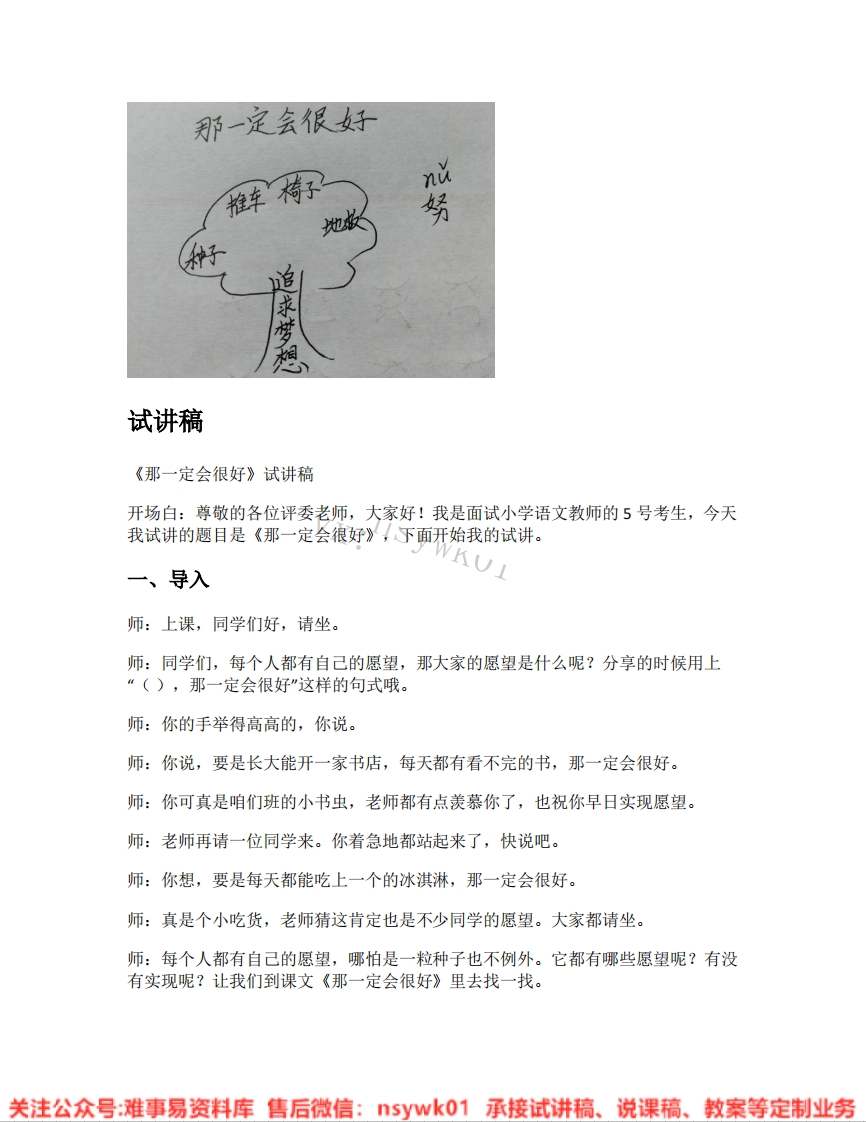 那一定会很好
推车
椅子
地板
种子
追求梦想
nǔ
努
试讲稿
《那一定会很好》试讲稿
开场白：尊敬的各位评委老师，大家好！我是面试小学语文教师的 5 号考生，今天
我试讲的题目是《那一定会很好》，下面开始我的试讲。
nsywk01
一、导入
师：上课，同学们好，请坐。
师：同学们，每个人都有自己的愿望，那大家的愿望是什么呢？分享的时候用上
“（ ），那一定会很好”这样的句式哦。
师：你的手举得高高的，你说。
师：你说，要是长大能开一家书店，每天都有看不完的书，那一定会很好。
师：你可真是咱们班的小书虫，老师都有点羡慕你了，也祝你早日实现愿望。
师：老师再请一位同学来。你着急地都站起来了，快说吧。
师：你想，要是每天都能吃上一个的冰淇淋，那一定会很好。
师：真是个小吃货，老师猜这肯定也是不少同学的愿望。大家都请坐。
师：每个人都有自己的愿望，哪怕是一粒种子也不例外。它都有哪些愿望呢？有没
有实现呢？让我们到课文《那一定会很好》里去找一找。
关注公众号:难事易资料库 售后微信：nsywk01 承接试讲稿、说课稿、教案等定制业务